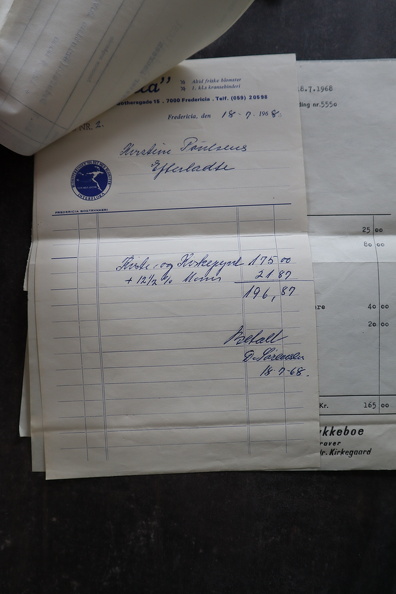 Altid friske blomster
1. kl.s kransebinderi
7000 Fredericia . Telf. (059) 20898
Fredericia, den 18-7-1968.
Kirstine Poulsens
Efterladte
Kiste- og Kirkepynt 175 00
+ 12½ % Moms 21 87
196,87
Betalt
18-7-68.
8.7.1968
ing nr.5550
25 00
80 00
40 00
20 00
Kr. 165 00
kkeboe
Kirkegaard